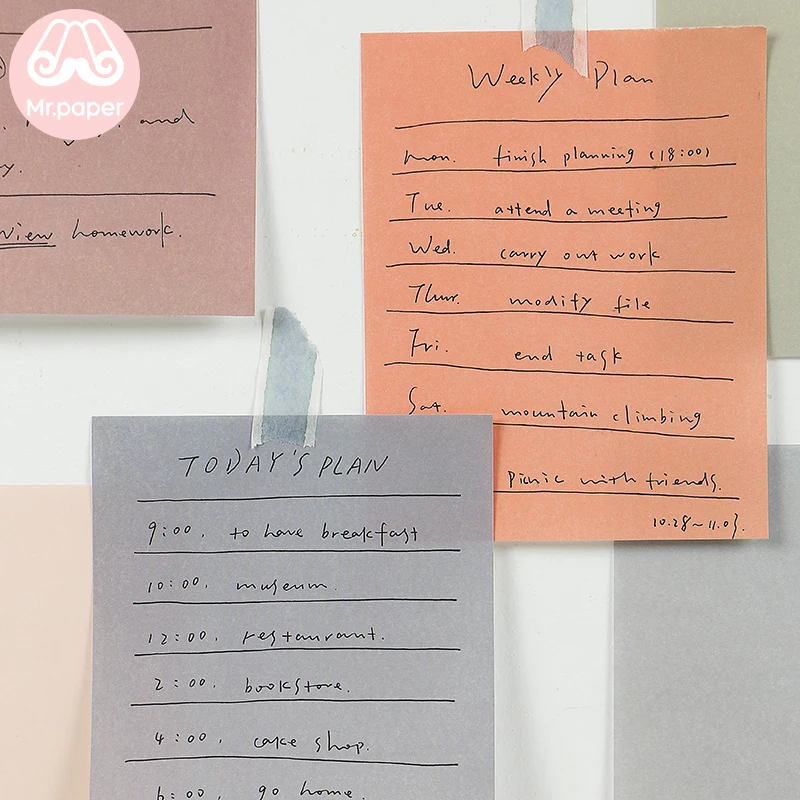 Mr.paper
and
y.
view homework.
Weekly Plan
Mon. finish planning (18:00)
Tue. attend a meeting
Wed. carry out work
Thur. modify file
Fri. end task
Sat. mountain climbing
picnic with friends.
10.28~11.03.
TODAY'S PLAN
9:00. to have breakfast
10:00. museum.
12:00. restaurant.
2:00. bookstore.
4:00. cake shop.
6:00. go home.